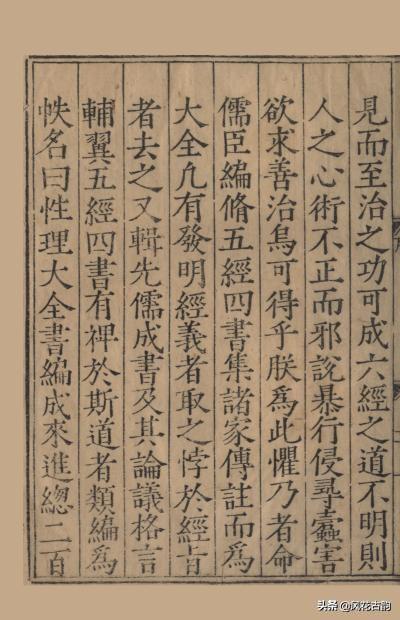 見而至治之功可成六經之道不明則
人之心術不正而邪說暴行侵尋蠹害
欲求善治烏可得乎朕為此懼乃者命
儒臣編脩五經四書集諸家傳註而為
大全凡有發明經義者取之悖於經旨
者去之又輯先儒成書及其論議格言
輔翼五經四書有裨於斯道者類編為
帙名曰性理大全書編成來進總二百
头条 @风花古韵